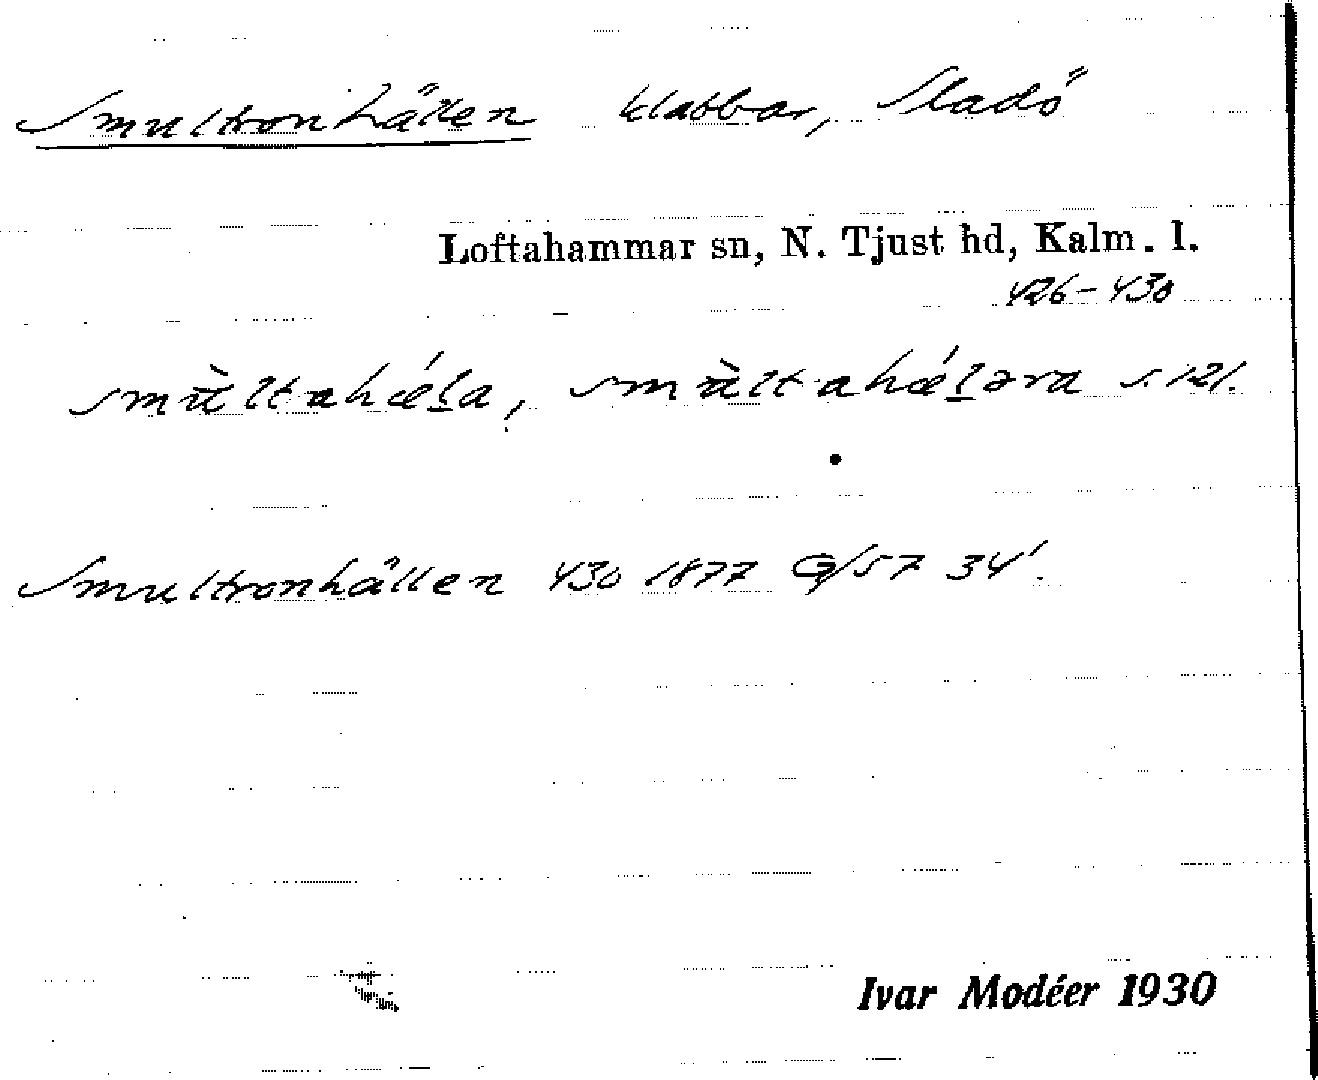 Smultronhällen klabbar, Sladö
Loftahammar sn, N. Tjust hd, Kalm. l.
426-430
smùltahǽḻa, smùltahǽḻəra s. 121.
Smultronhällen 430 1877 G/57 34'.
Ivar Modéer 1930